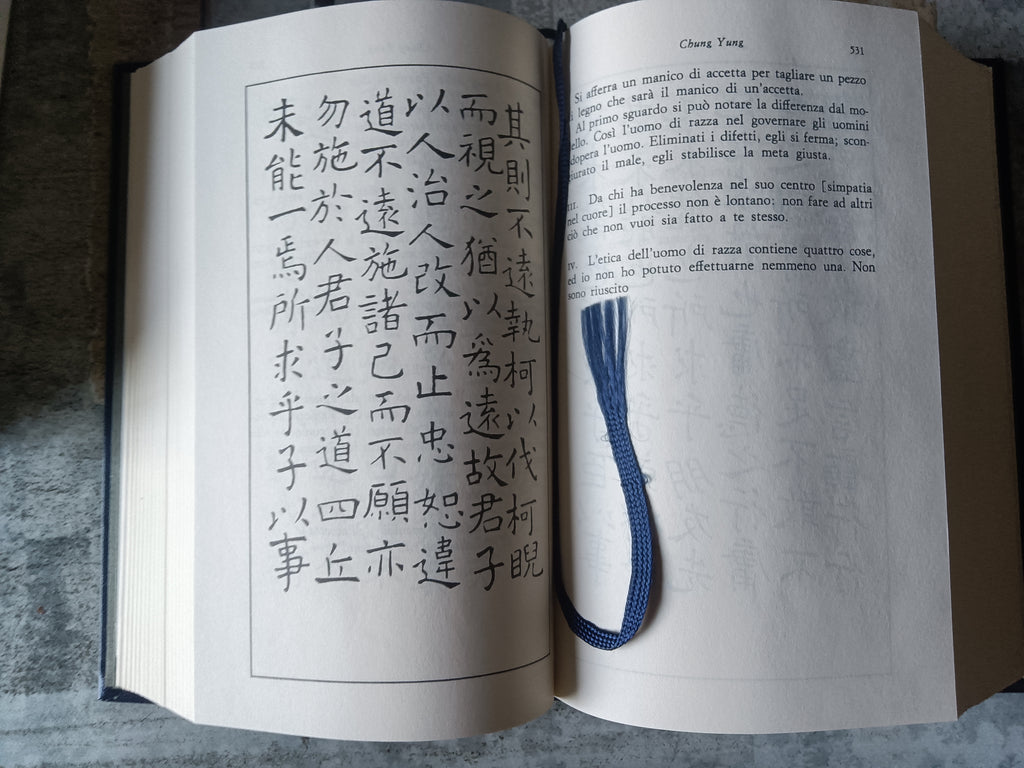 其則不遠執柯以伐柯睨
而視之猶以爲遠故君子
以人治人改而止忠恕違
道不遠施諸己而不願亦
勿施於人君子之道四丘
未能一焉所求乎子以事
Chung Yung
531
Si afferra un manico di accetta per tagliare un pezzo
i legno che sarà il manico di un'accetta.
Al primo sguardo si può notare la differenza dal mo-
ello. Così l'uomo di razza nel governare gli uomini
dopera l'uomo. Eliminati i difetti, egli si ferma; scon-
iurato il male, egli stabilisce la meta giusta.
III. Da chi ha benevolenza nel suo centro [simpatia
nel cuore] il processo non è lontano: non fare ad altri
ciò che non vuoi sia fatto a te stesso.
IV. L'etica dell'uomo di razza contiene quattro cose,
ed io non ho potuto effettuarne nemmeno una. Non
sono riuscito